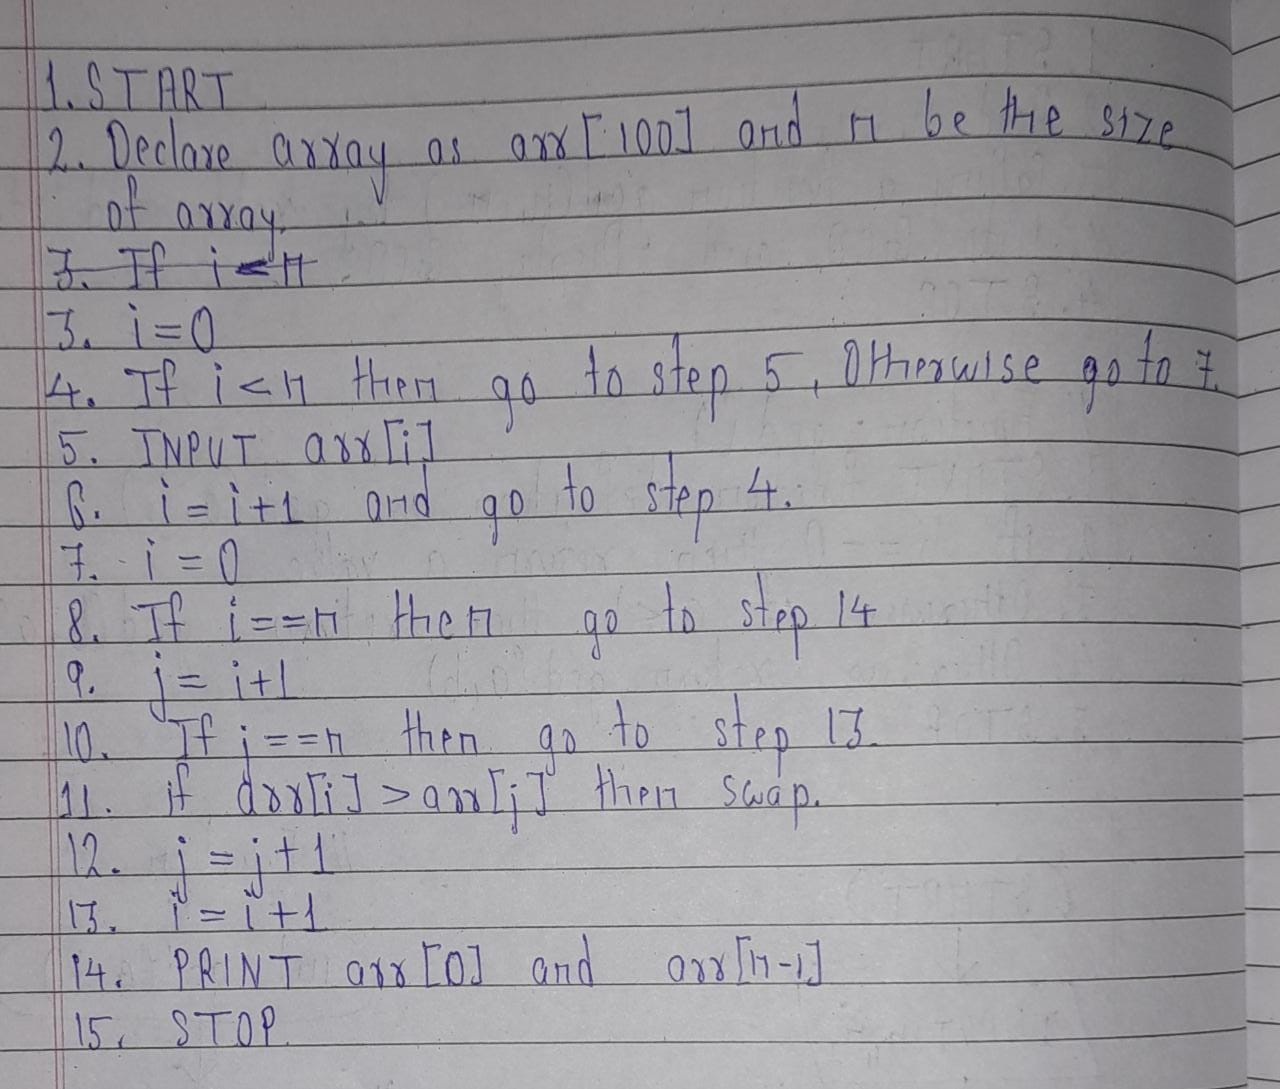 1. START
2. Declare array as arr[100] and n be the size
of array.
3. If i<n
3. i=0
4. If i<n then go to step 5, Otherwise go to 7.
5. INPUT arr[i]
6. i=i+1 and go to step 4.
7. i=0
8. If i==n then go to step 14
9. j=i+1
10. If j==n then go to step 13.
11. if arr[i]>arr[j] then swap.
12. j=j+1
13. i=i+1
14. PRINT arr[0] and arr[n-1]
15. STOP